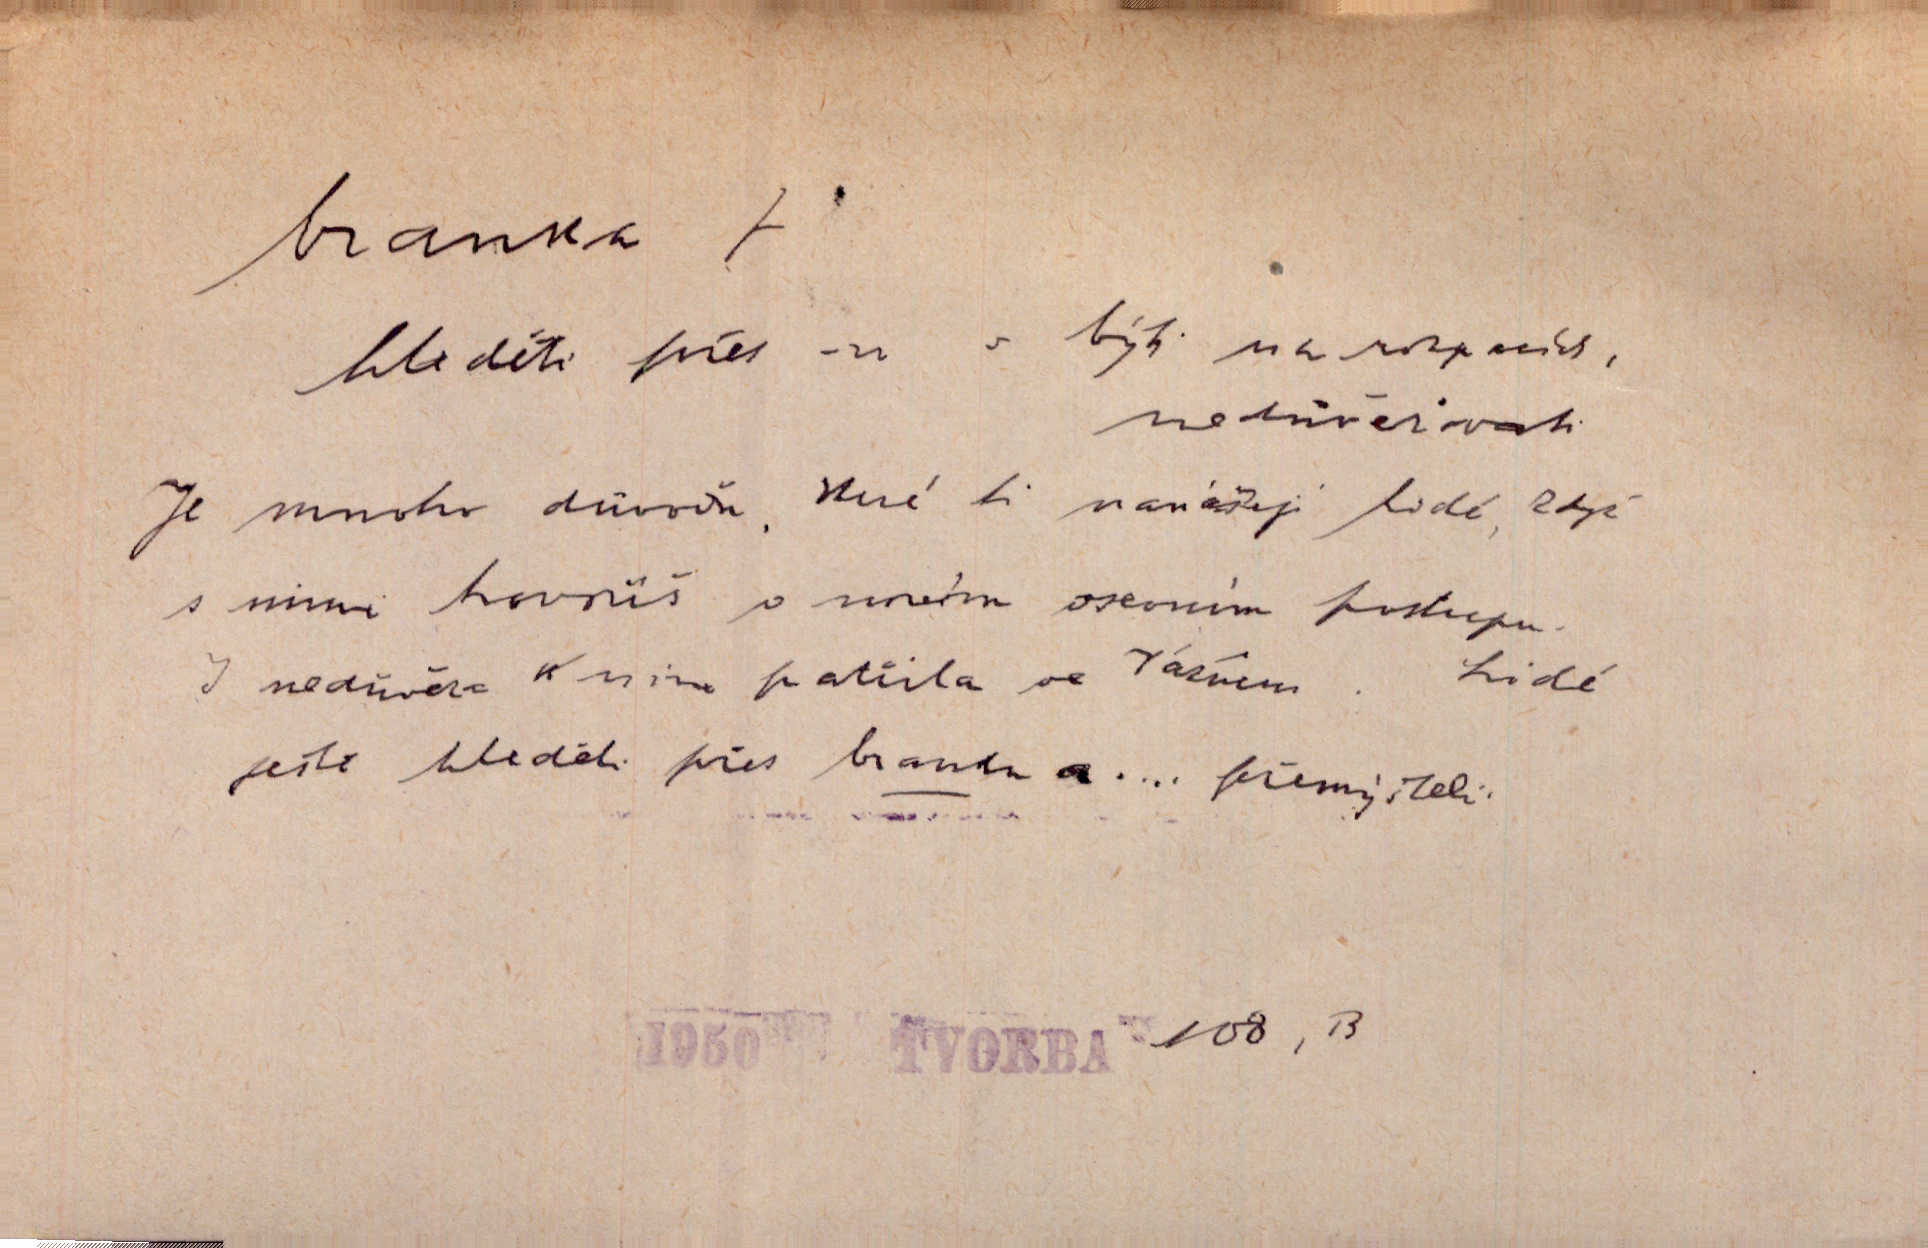 branka f
hleděti přes -u = býti na rozpacích,
nedůvěřovati
Je mnoho důvodů, které ti nanášejí lidé, když
s nimi hovoříš o novém osevním postupu.
I nedůvěra k nim patřila ve Vážném. Lidé
ještě hleděli přes branku a.... přemýšleli.
1950 TVORBA 108, B